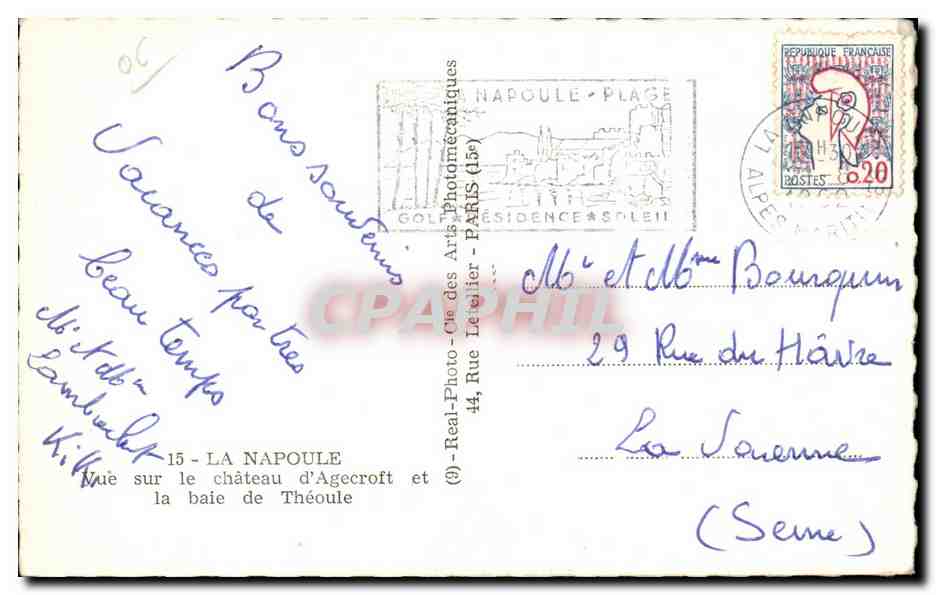 06
Bons souvenirs
de
Vacances par tres
beau temps
Mr et Mme
Lambalet
Kiki
15 - LA NAPOULE
Vue sur le château d'Agecroft et
la baie de Théoule
(9) - Real-Photo - Cie des Arts Photomécaniques
44, Rue Letellier - PARIS (15e)
LA NAPOULE - PLAGE
GOLF ★ RÉSIDENCE ★ SOLEIL
LA NAPOULE
ALPES MARITIMES
RÉPUBLIQUE FRANÇAISE
POSTES 0,20
Mr et Mme Bourquin
29 Rue du Hâvre
La Varenne
(Seine)
CPAPHIL